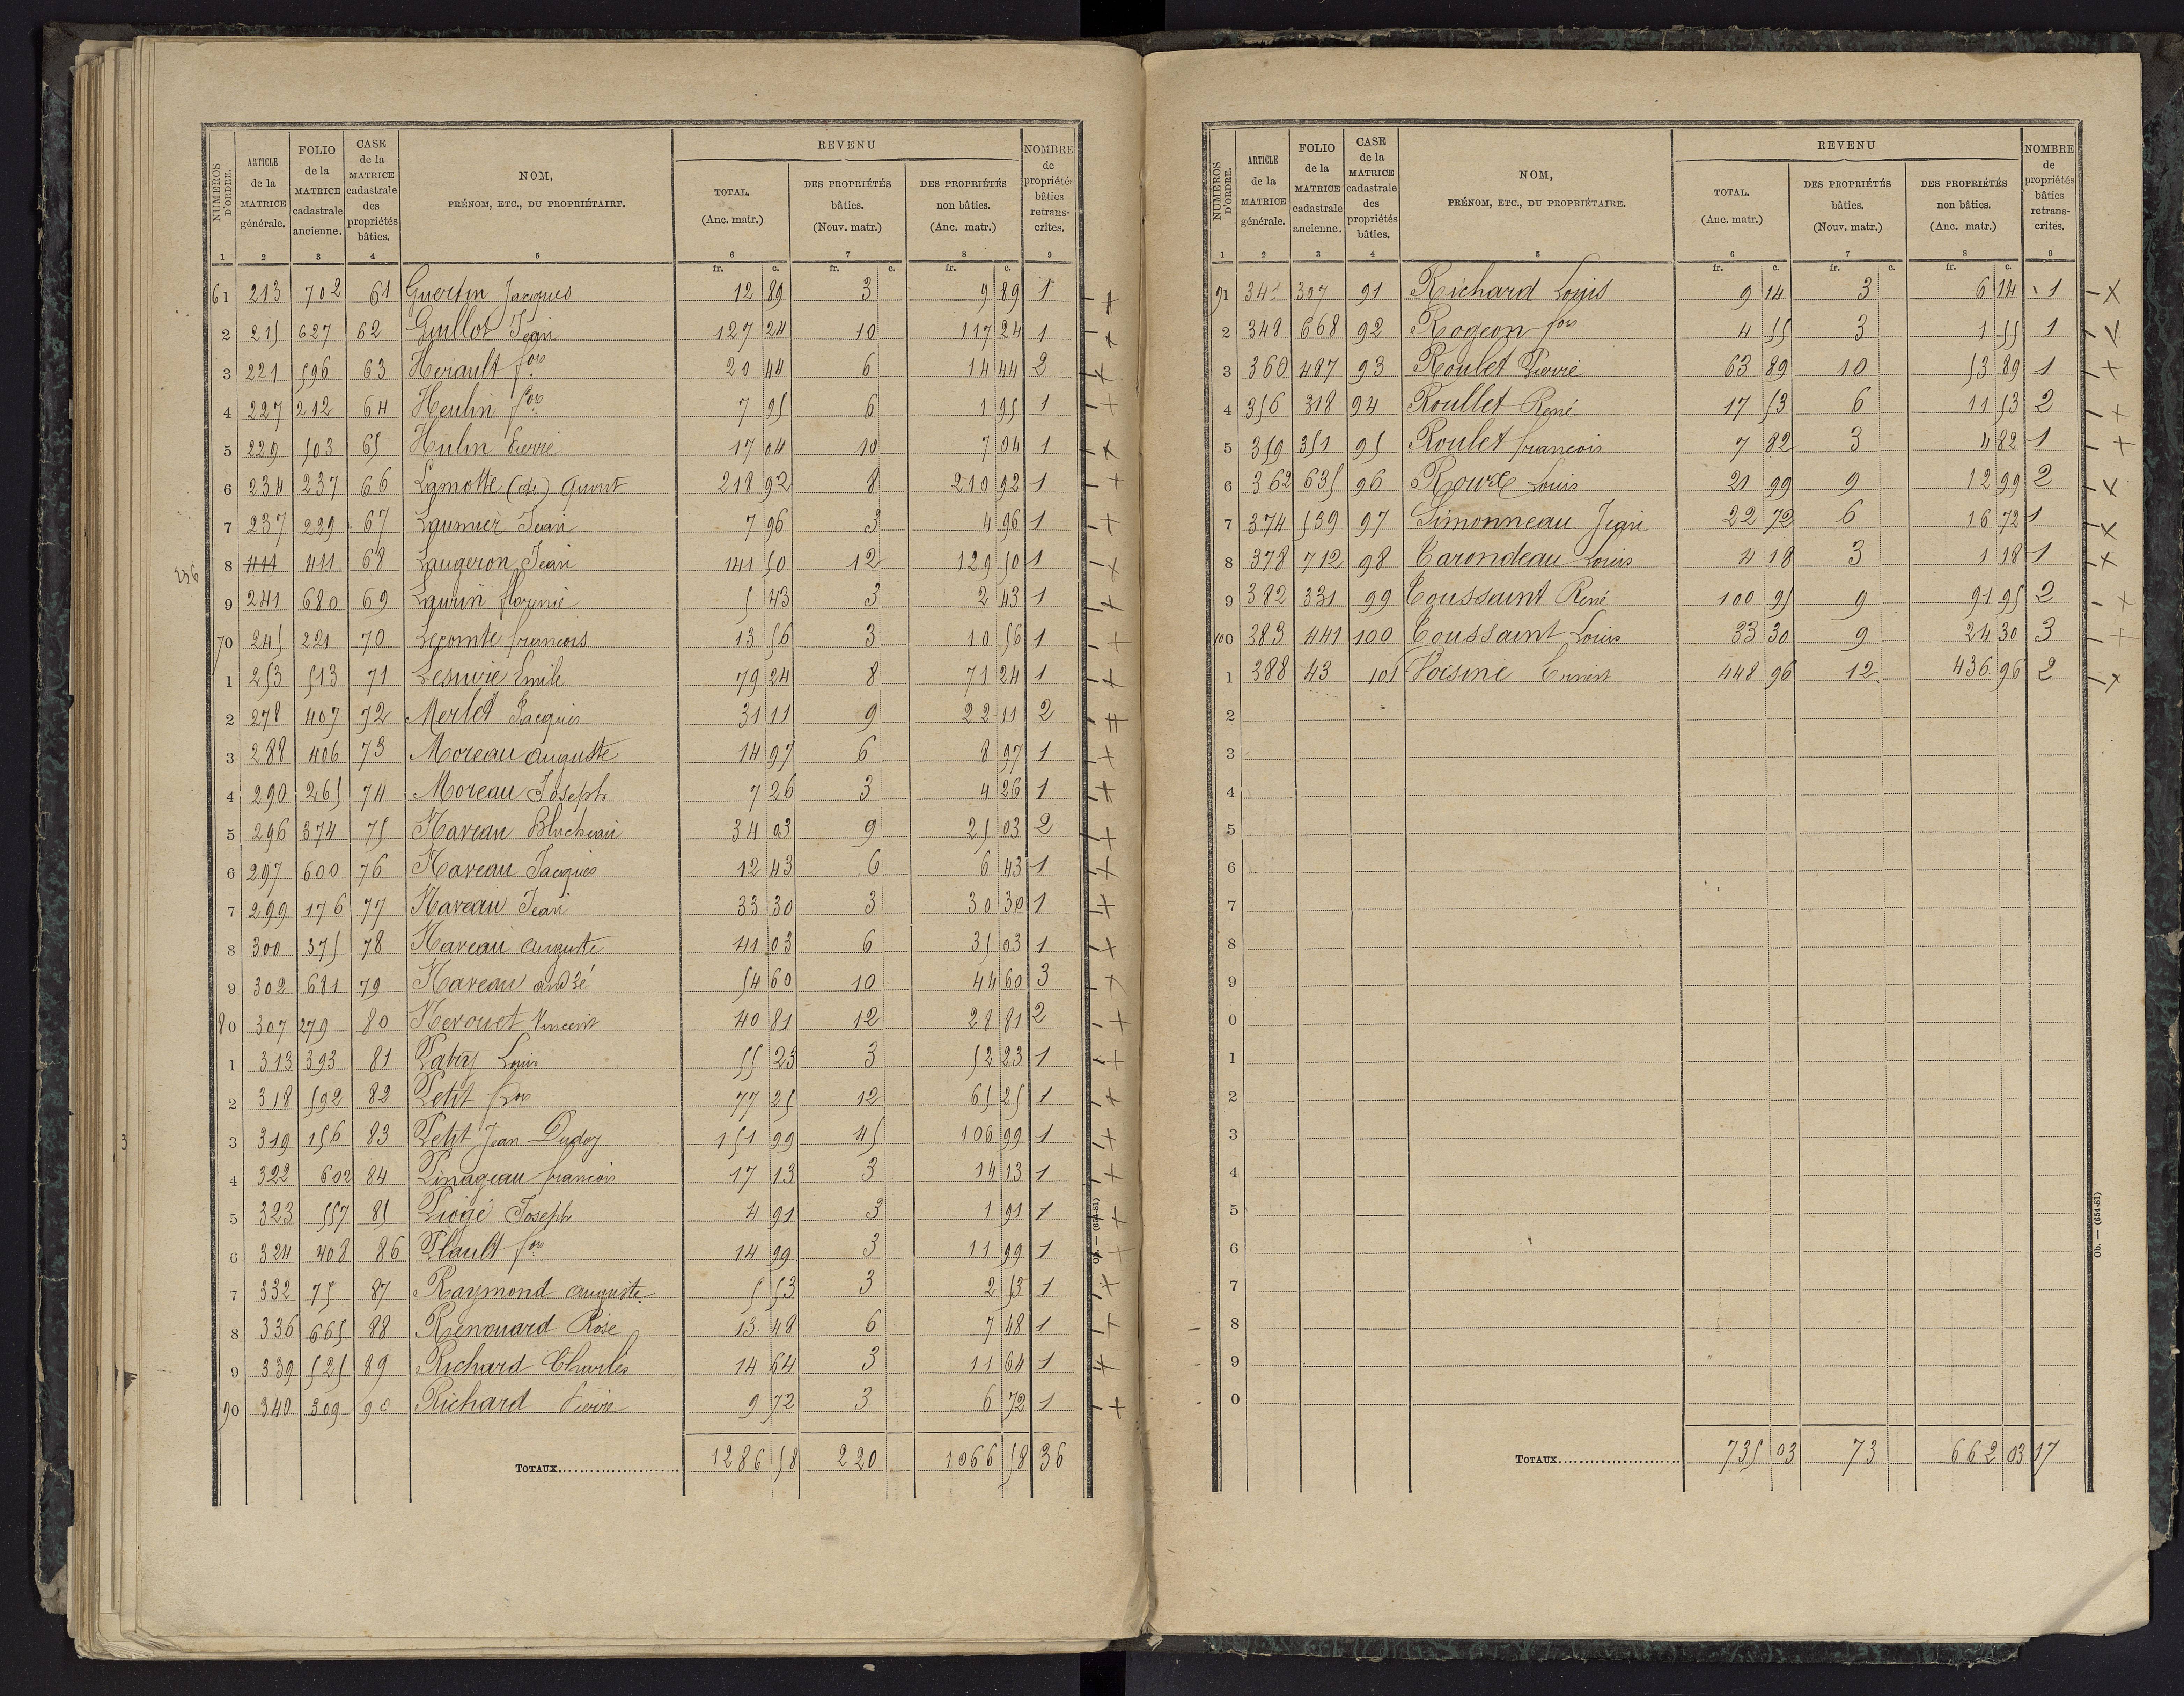 NUMÉROS D'ORDRE. | ARTICLE de la MATRICE générale. | FOLIO de la MATRICE cadastrale ancienne. | CASE de la MATRICE cadastrale des propriétés bâties. | NOM, PRÉNOM, ETC., DU PROPRIÉTAIRE. | REVENU TOTAL. (Anc. matr.) | DES PROPRIÉTÉS bâties. (Nouv. matr.) | DES PROPRIÉTÉS non bâties. (Anc. matr.) | NOMBRE de propriétés bâties retrans-crites.
1 2 3 4 5 6 7 8 9
fr. c. fr. c. fr. c.
61 213 702 61 Guertin Jacques 12 89 3 9 89 1
2 215 627 62 Guillot Jean 127 24 10 117 24 1
3 221 596 63 Herault fois 20 44 6 14 44 2
4 227 212 64 Heulin fois 7 95 6 1 95 1
5 229 503 65 Hulin Pierre 17 04 10 7 04 1
6 234 237 66 Lamotte (de) 218 92 8 210 92 1
7 237 229 67 Laumier Jean 7 96 3 4 96 1
236 8 411 411 68 Laugeron Jean 141 50 12 129 50 1
9 241 680 69 Laurin 5 43 3 2 43 1
70 245 221 70 Lecomte francois 13 56 3 10 56 1
1 253 513 71 Lesuvie Emile 79 24 8 71 24 1
2 278 407 72 Merlet Jacques 31 11 9 22 11 2
3 288 406 73 Moreau auguste 14 97 6 8 97 1
4 290 265 74 Moreau Joseph 7 26 3 4 26 1
5 296 374 75 Naveau 34 03 9 25 03 2
6 297 600 76 Naveau Jacques 12 43 6 6 43 1
7 299 176 77 Naveau Jean 33 30 3 30 30 1
8 300 375 78 Naveau auguste 41 03 6 35 03 1
9 302 681 79 Naveau andré 54 60 10 44 60 3
80 307 279 80 Nerouet Vincent 40 81 12 28 81 2
1 313 393 81 Patry Louis 55 23 3 52 23 1
2 318 592 82 Petit fois 77 25 12 65 25 1
3 319 156 83 Petit Jean Dudoy 151 99 45 106 99 1
4 322 602 84 Pinageau francois 17 13 3 14 13 1
5 323 557 85 Piogé Joseph 4 91 3 1 91 1
6 324 408 86 Plault fois 14 99 3 11 99 1
7 332 75 87 Raymond auguste 5 53 3 2 53 1
8 336 665 88 Renouard Rose 13 48 6 7 48 1
9 339 525 89 Richard Charles 14 64 3 11 64 1
90 340 309 90 Richard Pierre 9 72 3 6 72 1
TOTAUX 1286 58 220 1066 58 36
Ob. — (654-81)
NUMÉROS D'ORDRE. | ARTICLE de la MATRICE générale. | FOLIO de la MATRICE cadastrale ancienne. | CASE de la MATRICE cadastrale des propriétés bâties. | NOM, PRÉNOM, ETC., DU PROPRIÉTAIRE. | REVENU TOTAL. (Anc. matr.) | DES PROPRIÉTÉS bâties. (Nouv. matr.) | DES PROPRIÉTÉS non bâties. (Anc. matr.) | NOMBRE de propriétés bâties retrans-crites.
1 2 3 4 5 6 7 8 9
fr. c. fr. c. fr. c.
91 341 307 91 Richard Louis 9 14 3 6 14 1
2 348 668 92 Rogeon fois 4 55 3 1 55 1
3 360 487 93 Roulet Pierre 63 89 10 53 89 1
4 356 318 94 Roullet René 17 53 6 11 53 2
5 359 351 95 Roulet francois 7 82 3 4 82 1
6 362 635 96 Roux Louis 21 99 9 12 99 2
7 374 539 97 Simonneau Jean 22 72 6 16 72 1
8 378 712 98 Tarondeau Louis 4 18 3 1 18 1
9 382 331 99 Toussaint René 100 95 9 91 95 2
100 383 441 100 Toussaint Louis 33 30 9 24 30 3
1 388 43 101 Voisine Ernest 448 96 12 436 96 2
2
3
4
5
6
7
8
9
0
1
2
3
4
5
6
7
8
9
0
TOTAUX 735 03 73 662 03 17
Ob. — (654-81)